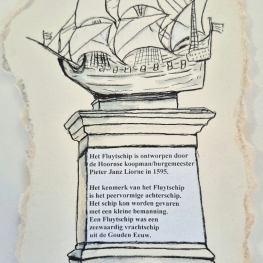 Het Fluytschip is ontworpen door
de Hoornse koopman/burgemeester
Pieter Janz Liorne in 1595.
Het kenmerk van het Fluytschip
is het peervormige achterschip.
Het schip kon worden gevaren
met een kleine bemanning.
Een Fluytschip was een
zeewaardig vrachtschip
uit de Gouden Eeuw.